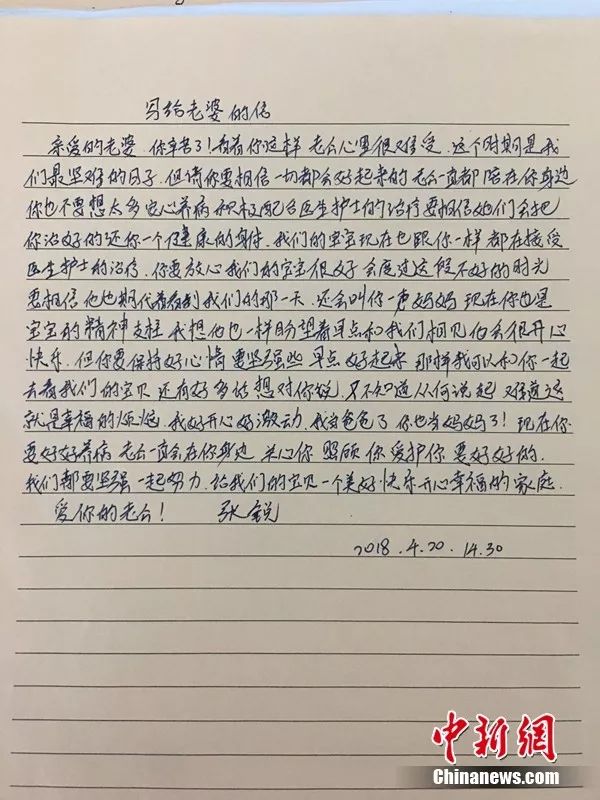 写给老婆的信
亲爱的老婆 你辛苦了!看着你这样 老公心里很难受 这个时期是我
们最坚难的日子.但请你要相信一切都会好起来的 老公一直都陪在你身边
你也不要想太多安心养病 积极配合医生护士的治疗要相信她们会把
你治好的还你一个健康的身体.我们的宝宝现在也跟你一样都在接受
医生护士的治疗.你要放心我们的宝宝很好 会度过这段不好的时光
要相信他他期代着看到我们的那一天.还会叫你一声妈妈 现在你也是
宝宝的精神支柱 我想他也一样盼望着早点和我们相见他会很开心
快乐.但你要保持好心情 要坚强些 早点好起来 那样我可以和你一起
去看我们的宝贝 还有好多话想对你说.又不知道从何说起 难道这
就是幸福的烦恼.我好开心好激动.我当爸爸了 你也当妈妈了!现在你
要好好养病 老公一直会在你身边 关心你 照顾你 爱护你 要好好的.
我们都要坚强一起努力.给我们的宝贝一个美好快乐开心幸福的家庭.
爱你的老公! 张锐
2018.4.20.14.30
中新網
Chinanews.com